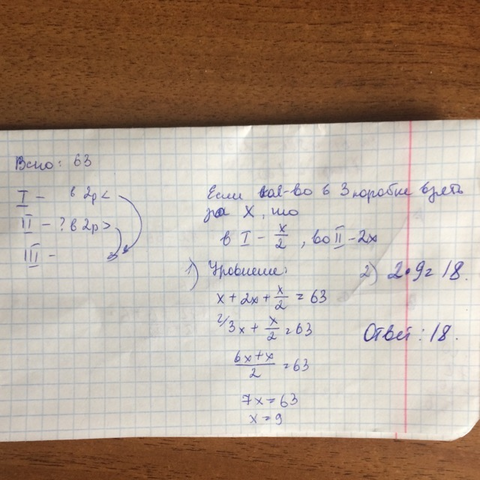 Всего: 63
I - в 2р <
II - ? в 2р >
III -
Если кол-во в 3 коробке взять
за X, то
в I - x/2, во II - 2x
1) Уравнение:
x + 2x + x/2 = 63
2/3x + x/2 = 63
6x+x/2 = 63
7x = 63
x = 9
2) 2•9 = 18.
Ответ: 18.